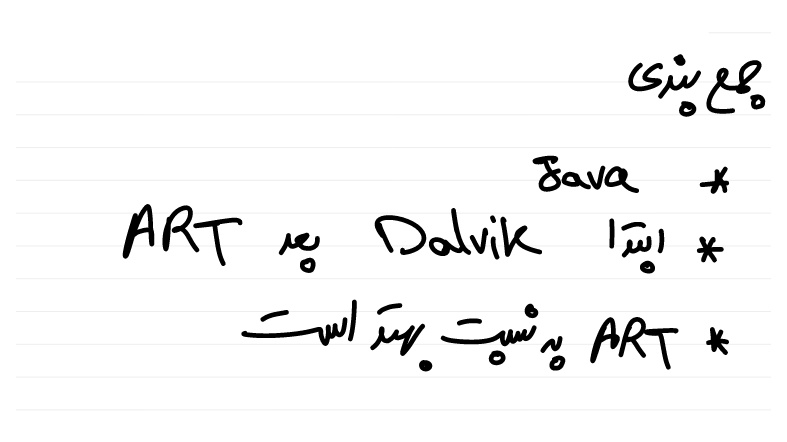 جمع بندی
* Java
* ابتدا Dalvik بعد ART
* ART به نسبت بهتر است